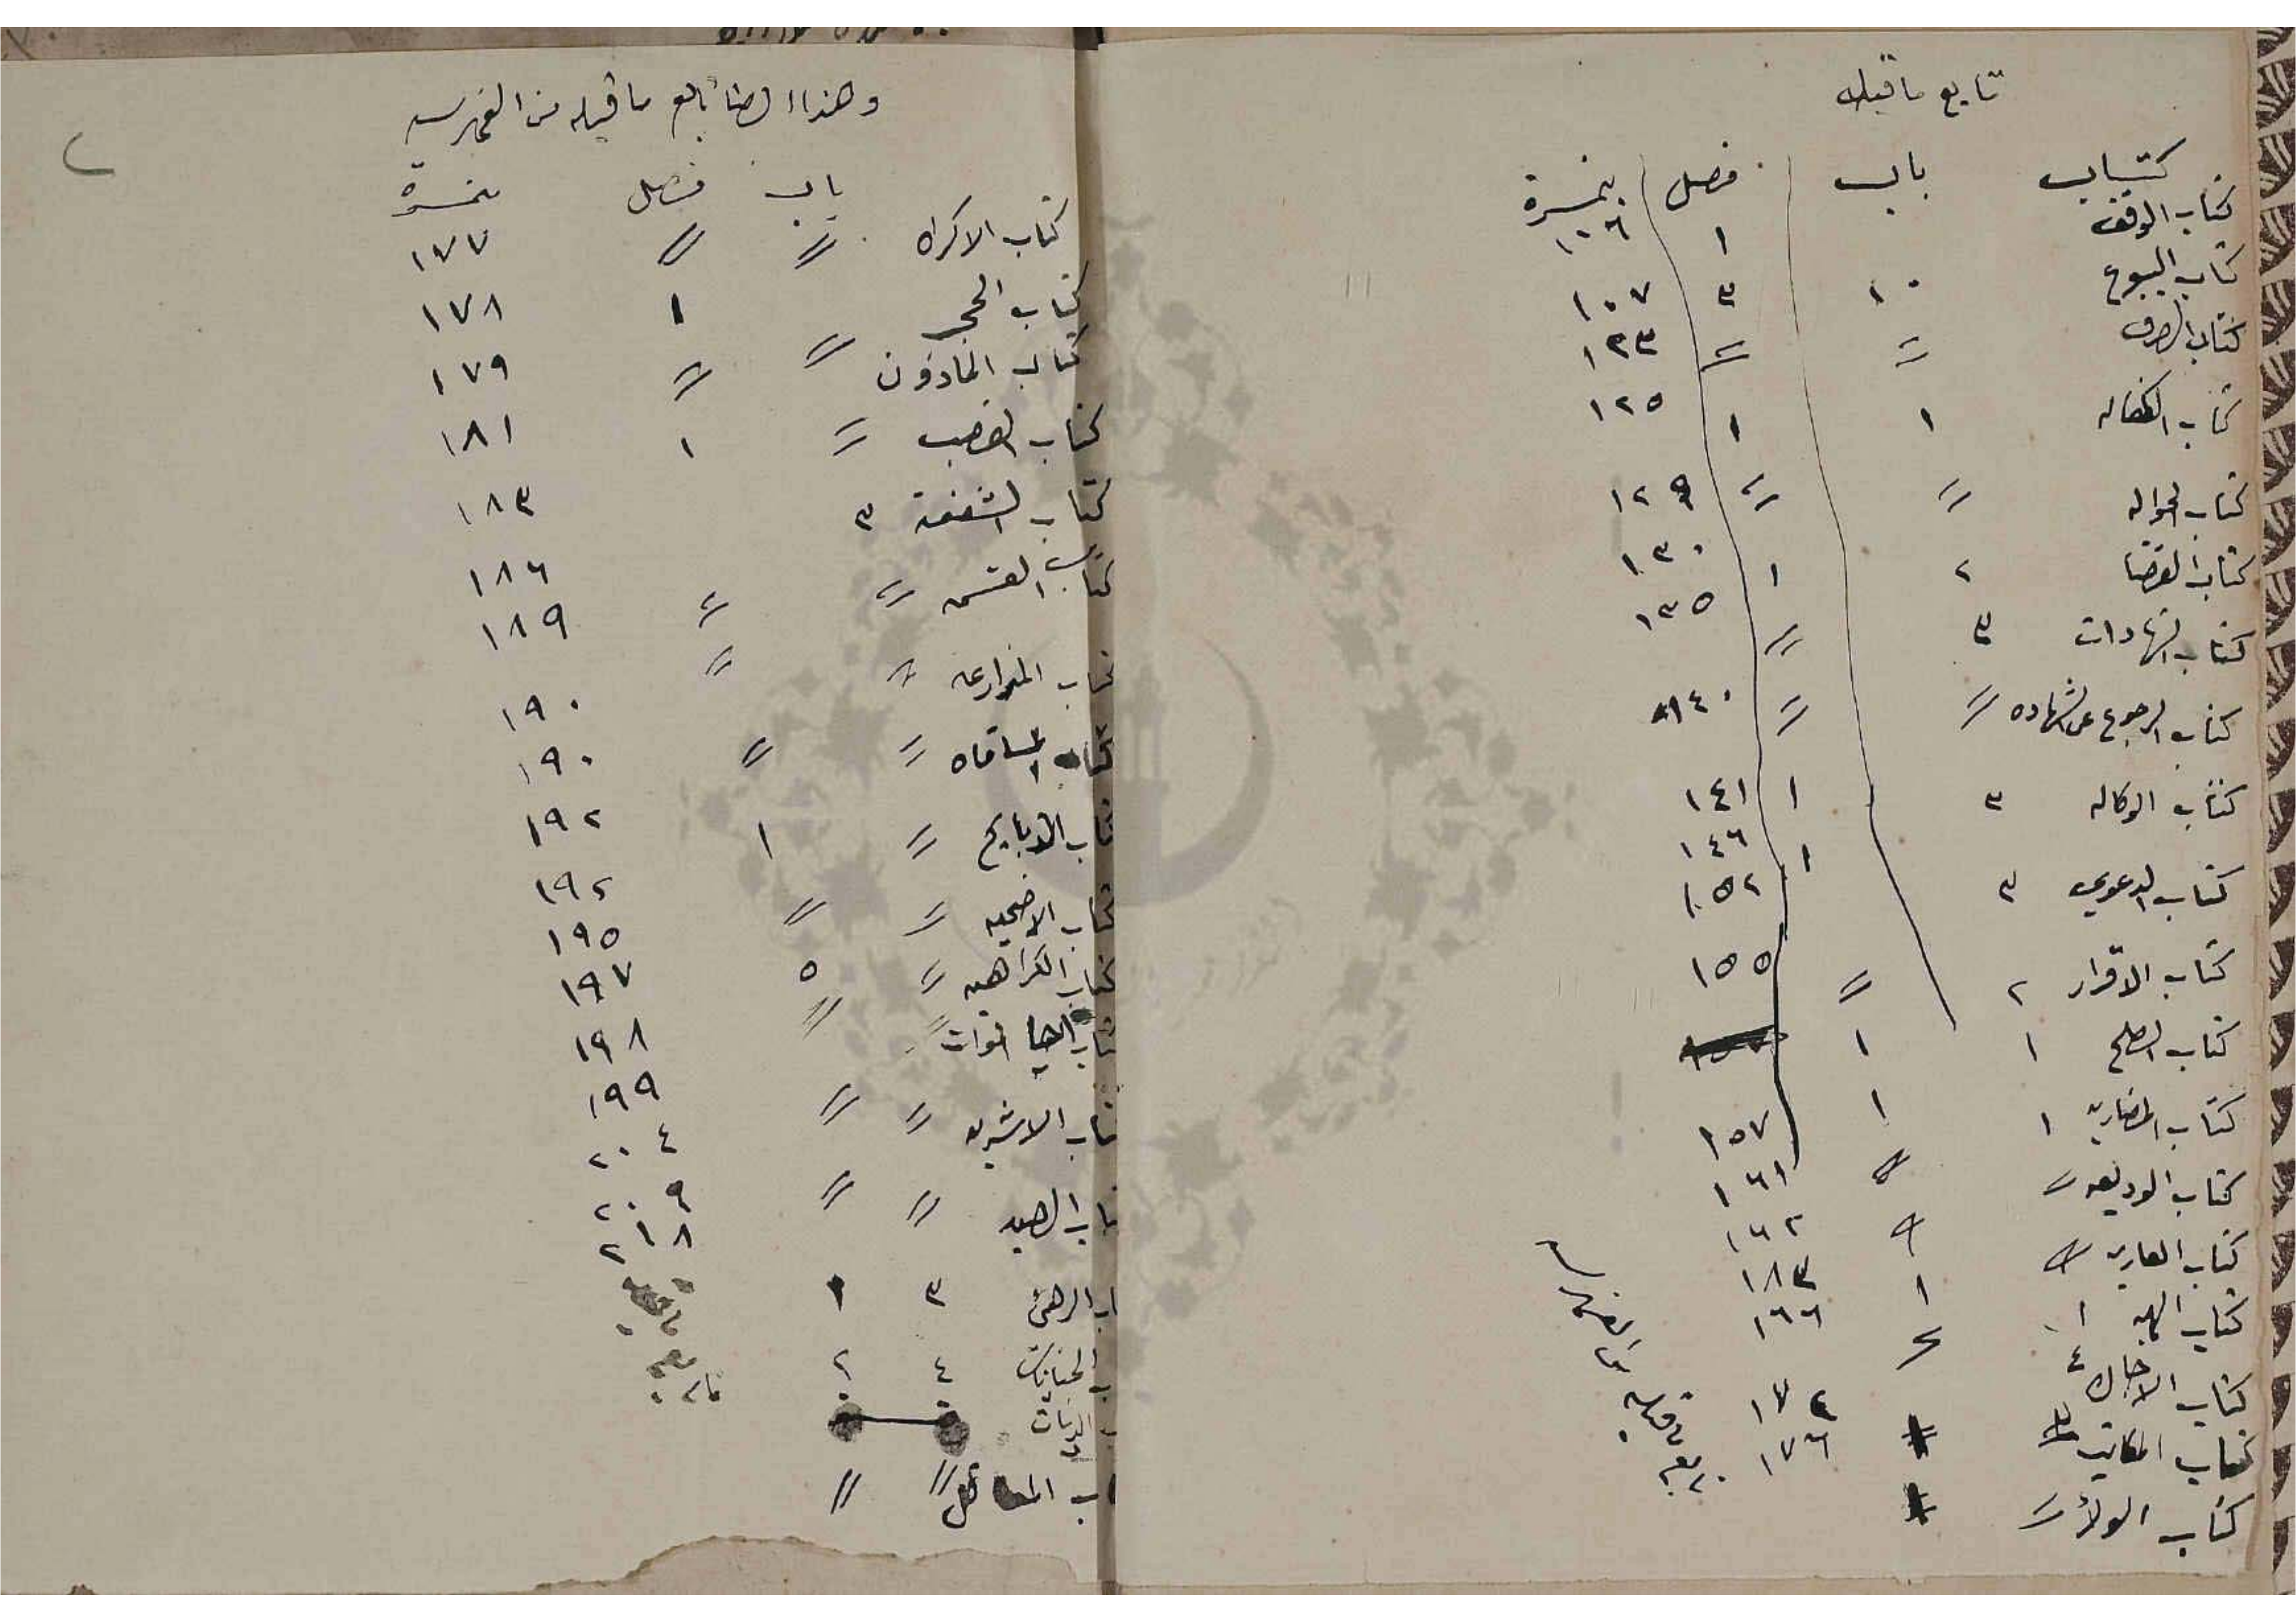 تابع ما قبله
كتاب باب فصل بنمرة
كتاب الوقف ١ ١٠٦
كتاب البيوع ١٠ ٣ ١٠٧
كتاب الصرف 〃 〃 ١٢٣
كتاب الكفاله ١ ١ ١٢٥
كتاب الحواله 〃 〃 ١٢٩
كتاب القضا ٢ ١ ١٣٠
كتاب الشهادات ٣ 〃 ١٣٥
كتاب الرجوع عن الشهاده 〃 〃 ١٤٠
كتاب الوكاله ٣ ١ ١٤١
كتاب الدعوي ٣ ١ ١٤٦
كتاب الاقرار ٢ 〃 ١٥٢
كتاب الصلح ١ ١ ١٥٥
كتاب المضاربه ١ ١ ١٥٧
كتاب الوديعه 〃 〃 ١٦١
كتاب العاريه 〃 〃 ١٦٢
كتاب الهبه ١ ١ ١٨٣
كتاب الاجاره ٤ ٢ ١٦٦
كتاب المكاتب ١٧٢
كتاب الولاء 〃 ١٧٦
وهذا ايضا تابع ما قبله من الفهرسه
باب فصل بنمرة
كتاب الاكراه 〃 〃 ١٧٧
كتاب الحجر 〃 ١ ١٧٨
كتاب الماذون 〃 ١٧٩
كتاب الغصب 〃 ١ ١٨١
كتاب الشفعة ٣ ١٨٣
كتاب القسمه 〃 〃 ١٨٦
كتاب المزارعه 〃 〃 ١٨٩
كتاب المساقاه 〃 〃 ١٩٠
كتاب الذبايح 〃 ١ ١٩٠
كتاب الاضحيه 〃 〃 ١٩٢
كتاب الكراهيه 〃 ٥ ١٩٢
كتاب احيا الموات 〃 〃 ١٩٥
كتاب الاشربه 〃 〃 ١٩٧
كتاب الصيد 〃 〃 ١٩٨
كتاب الرهن ٣ ١ ١٩٩
الجنايات ٤ ٢ ٢٠٤
الديات ٢٠٩
المعاقل 〃 〃 ٢١٨